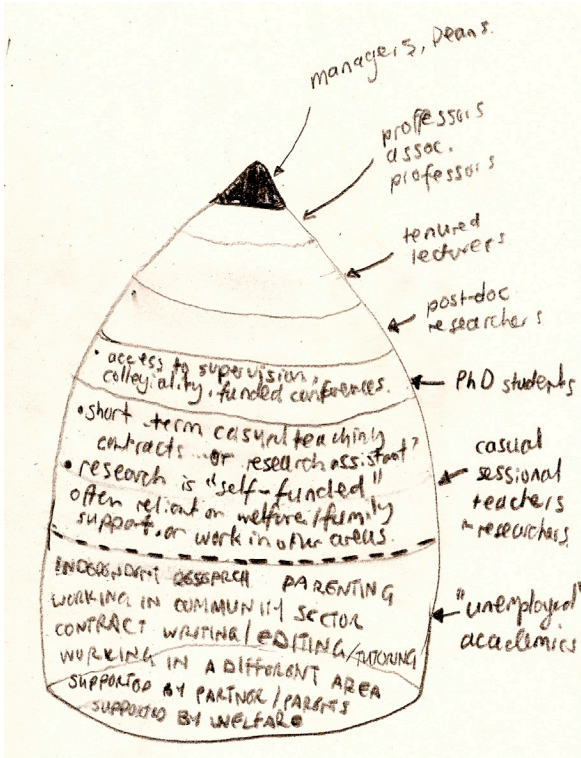 managers, Deans.
proffessors
assoc.
professors
tenured
lecturers
post-doc
researchers
• access to supervision,
collegiality, funded conferences.
PhD students
• short term casual teaching
contracts or research assistant?
• research is "self-funded"
often reliant on welfare/family
support, or work in other areas.
casual
sessional
teachers
researchers
INDEPENDENT RESEARCH PARENTING
WORKING IN COMMUNITY SECTOR
CONTRACT WRITING/EDITING/TUTORING
WORKING IN A DIFFERENT AREA
SUPPORTED BY PARTNER/PARENTS
SUPPORTED BY WELFARE
"unemployed"
academics